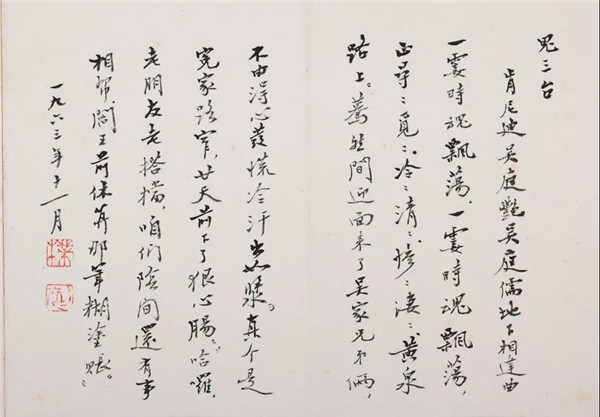 鬼三台
肯尼迪吴庭艷吴庭儒地下相逢曲
一霎時魂飄蕩,一霎時魂飄蕩,
正尋〻覓〻、冷〻清〻、慘〻淒〻、黃泉
路上。驀然間迎面来了吴家兄弟倆,
不由得心發慌冷汗出如漿。真个是
冤家路窄,廿天前下了狠心腸。哈囉,
老朋友老搭擋,咱們陰間還有事
相帮,閻王前休算那筆糊塗賬。
一九六三年十一月